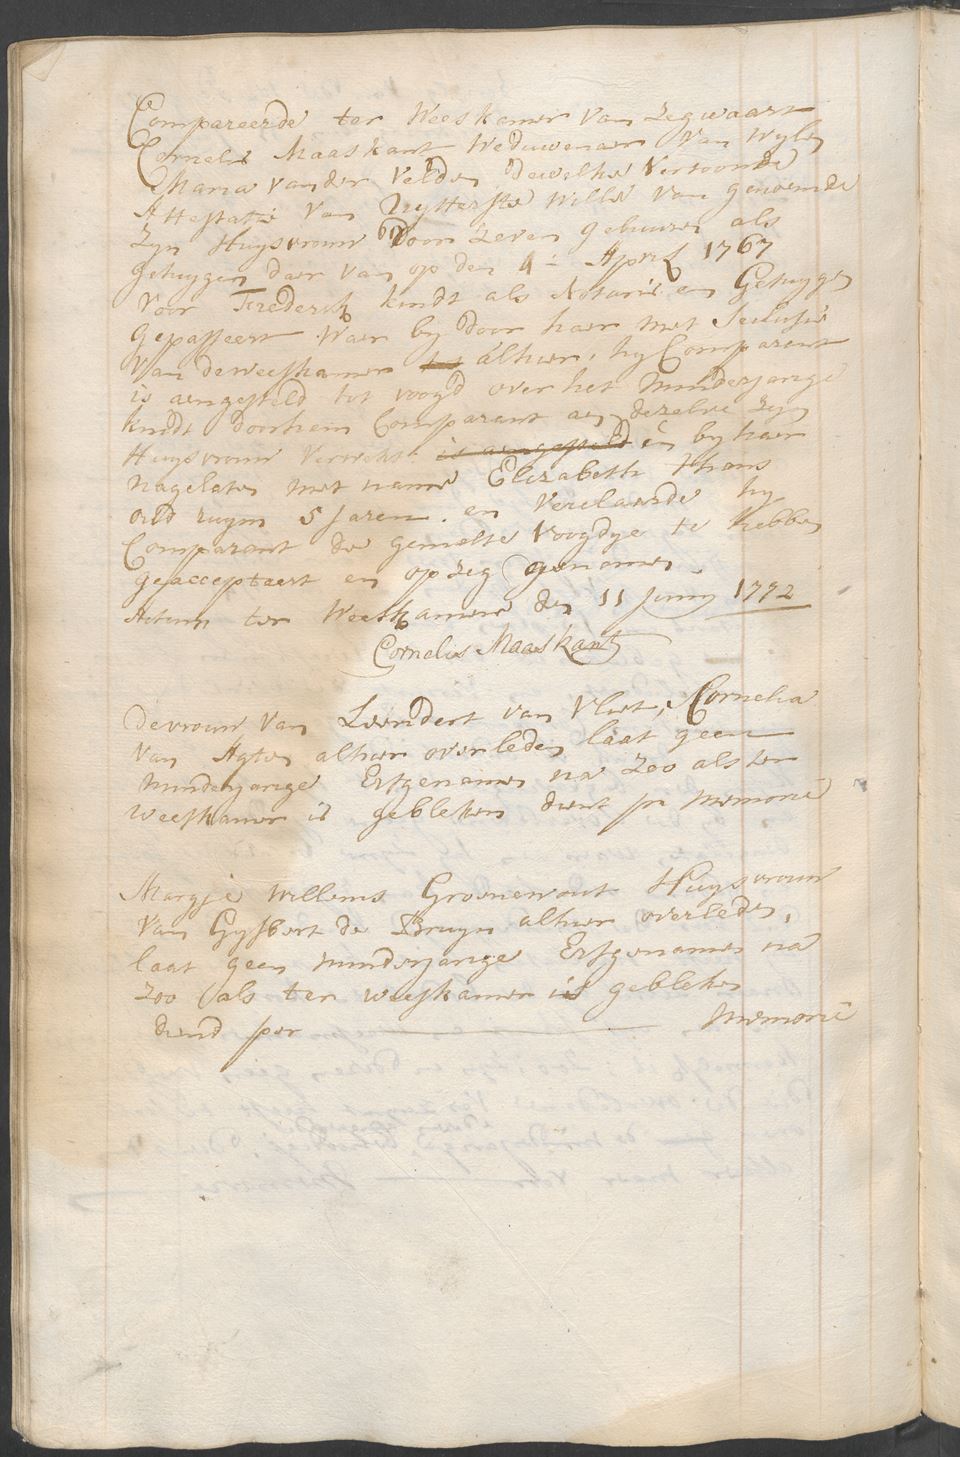 Compareerde ter Weeskamer van Zegwaart
Cornelis Maaskant Weduwenaer van Wylen
Maria van der Velden dewelke Vertoonde
Attestatie van Uytterste Wille van genoemde
Zyn Huysvrouw door Zeven gebuuren als
getuygen daer van op den 4e April 1767
voor Frederik kindt als Notaris en Getuygen
gepasseert waer by door haer met Seclusie
van de weeskamer alhier, hy Comparant
is aengesteld tot voogd over het minderjarige
kindt door hem Comparant aen dezelve Zyn
Huysvrouw verwekt is aengesteld en by haer
nagelaten met name Elizabeth thans
oud ruym 5 Jaren. en Verclaerde hy
Comparant de gemelte voogdye te hebben
geaccepteert en op zeg genomen.
Actum ter Weeskamere den 11 Juny 1772
Cornelis Maaskant
de vrouw van Leendert van Vliet, Cornelia
van Agten alhier overleden laat geen
minderjarige Erfgenamen na zoo als ter
weeskamer is gebleken dient pr memorie
Margje Willems Groenewout Huysvrouw
van Gysbert de Bruyn alhier overleden,
laat geen minderjarige Erfgenamen na
zoo als ter weeskamer is gebleken
diend per memorie